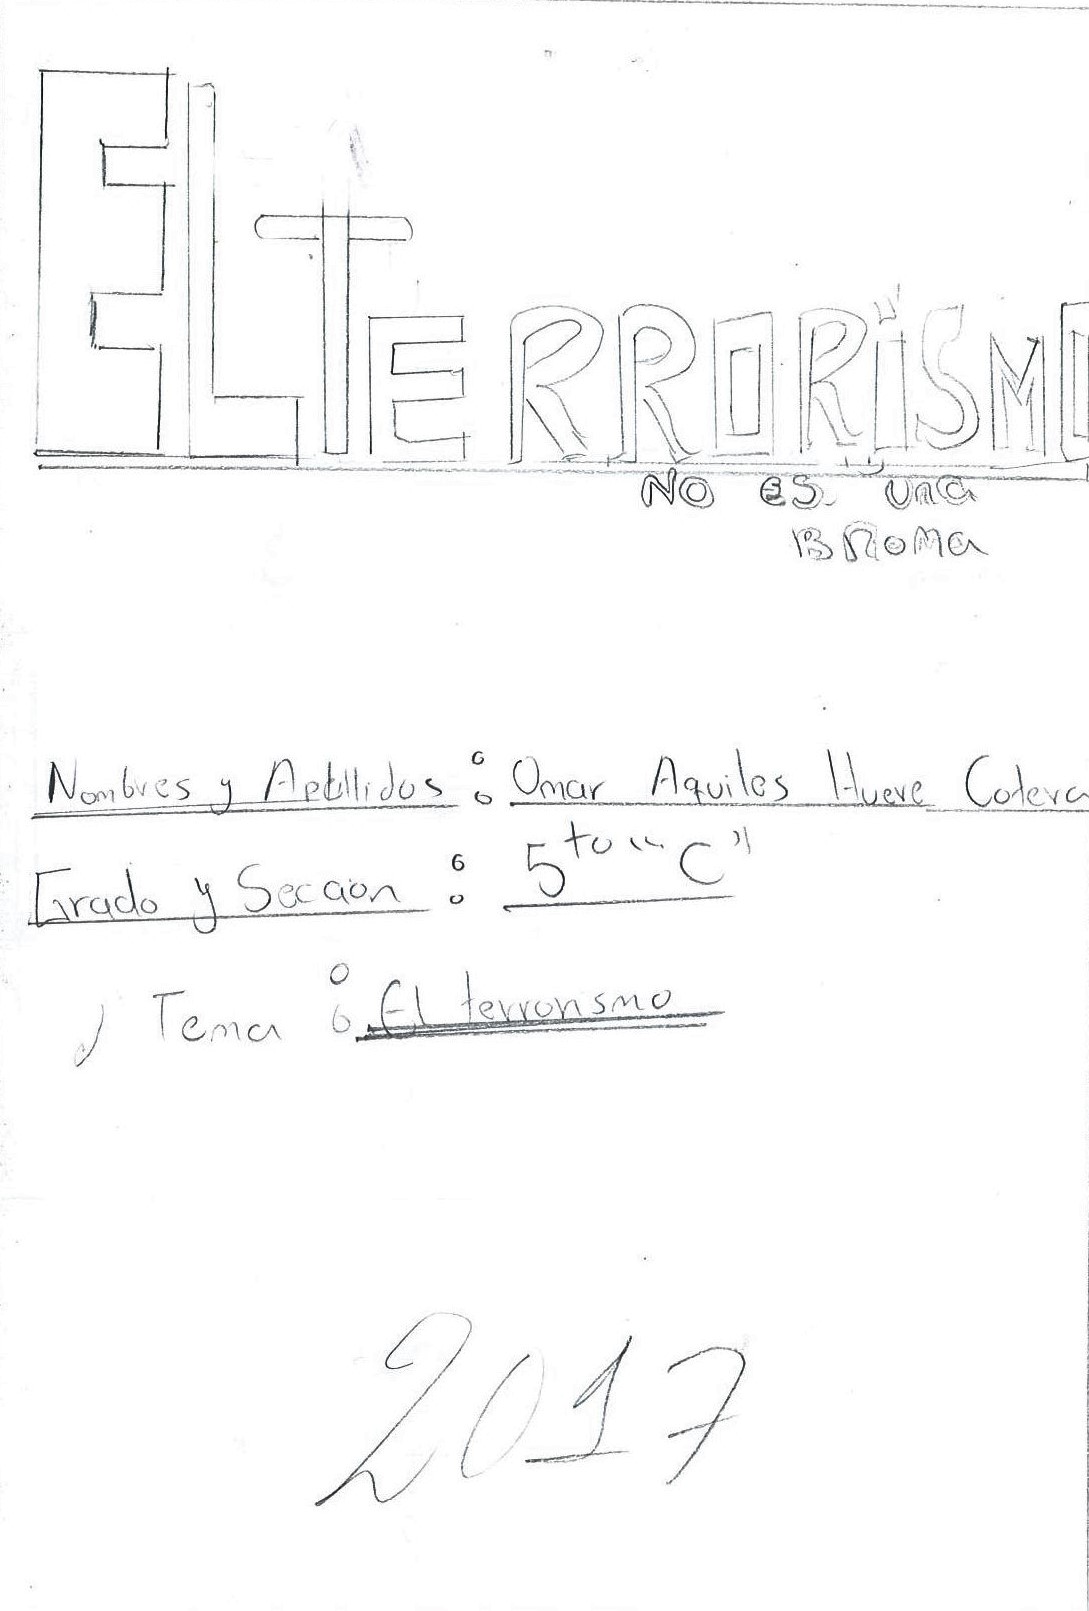 EL TERRORiSMO
NO es una
BROMa
Nombres y Apellidos : Omar Aquiles Hueve Cotera
Grado y Sección : 5to "C"
Tema : El terrorismo
2017